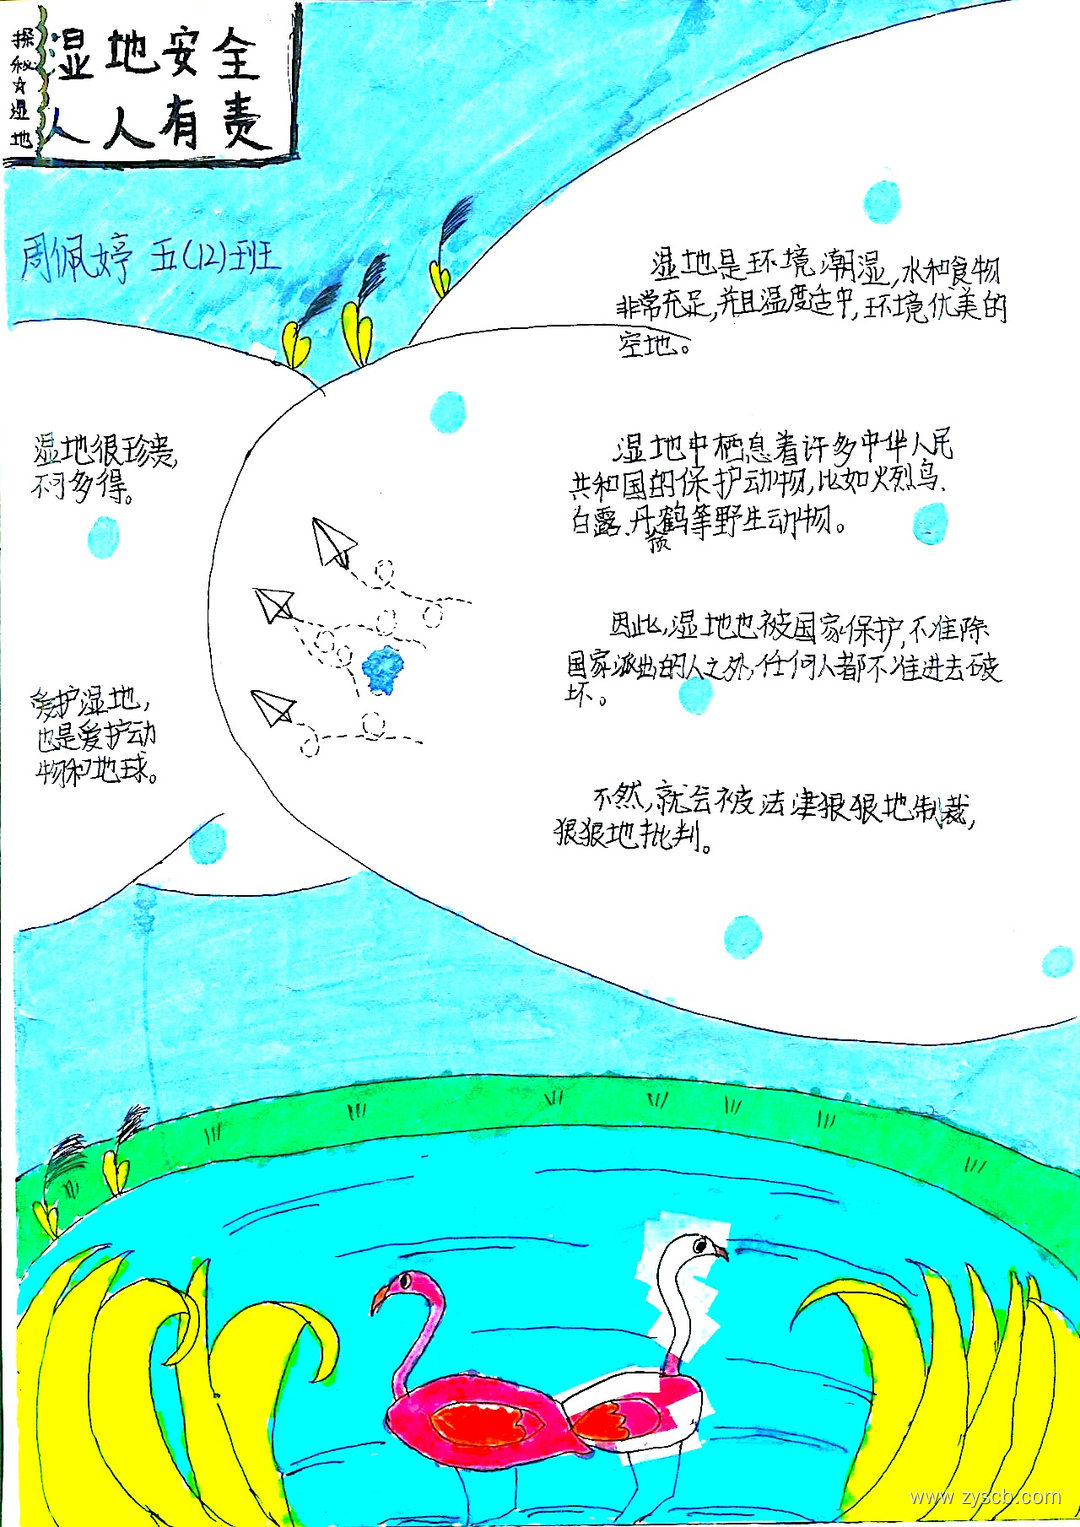 探秘☆湿地
湿地安全
人人有责
周佩婷 五(12)班
湿地是环境潮湿,水和食物
非常充足,并且温度适中,环境优美的
空地。
湿地很珍贵,
不可多得。
湿地中栖息着许多中华人民
共和国的保护动物,比如火烈鸟、
白露、丹鹤等野生动物。
顶
因此,湿地也被国家保护,不准除
国家派出的人之外,任何人都不准进去破
坏。
爱护湿地,
也是爱护动
物和地球。
不然,就会被法津狠狠地制裁,
狠狠地批判。
www.zyscb.com